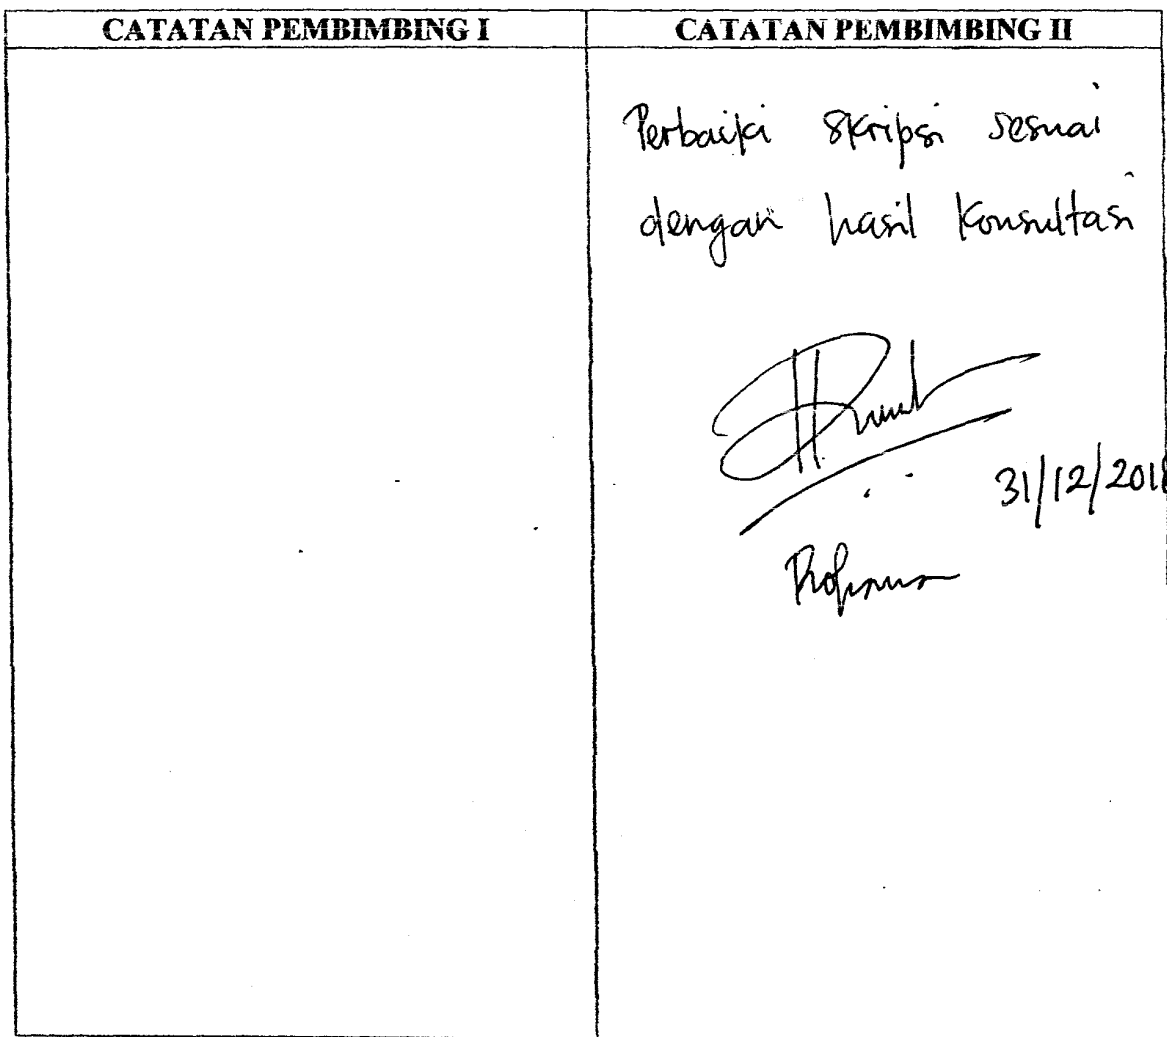 CATATAN PEMBIMBING I
CATATAN PEMBIMBING II
Perbaiki skripsi sesuai
dengan hasil konsultasi
31/12/2018